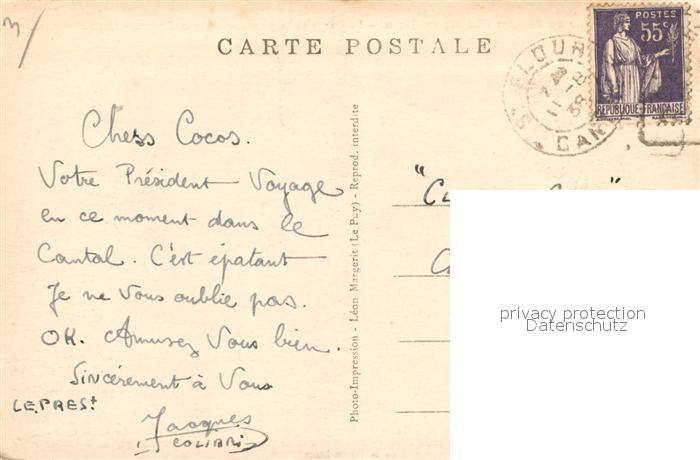 3/
CARTE POSTALE
POSTES
55c
RÉPUBLIQUE FRANÇAISE
ST FLOUR
11 8 38
CAN
Chess Cocos.
Votre Président Voyage
en ce moment dans le
Cantal. C'est épatant
Je ne vous oublie pas.
OK. Amusez Vous bien.
Sincèrement à Vous
LE PRESt
Jacques
COLIBRI
Photo-Impression - Léon Margerit (Le Puy) - Reprod. interdite
privacy protection
Datenschutz